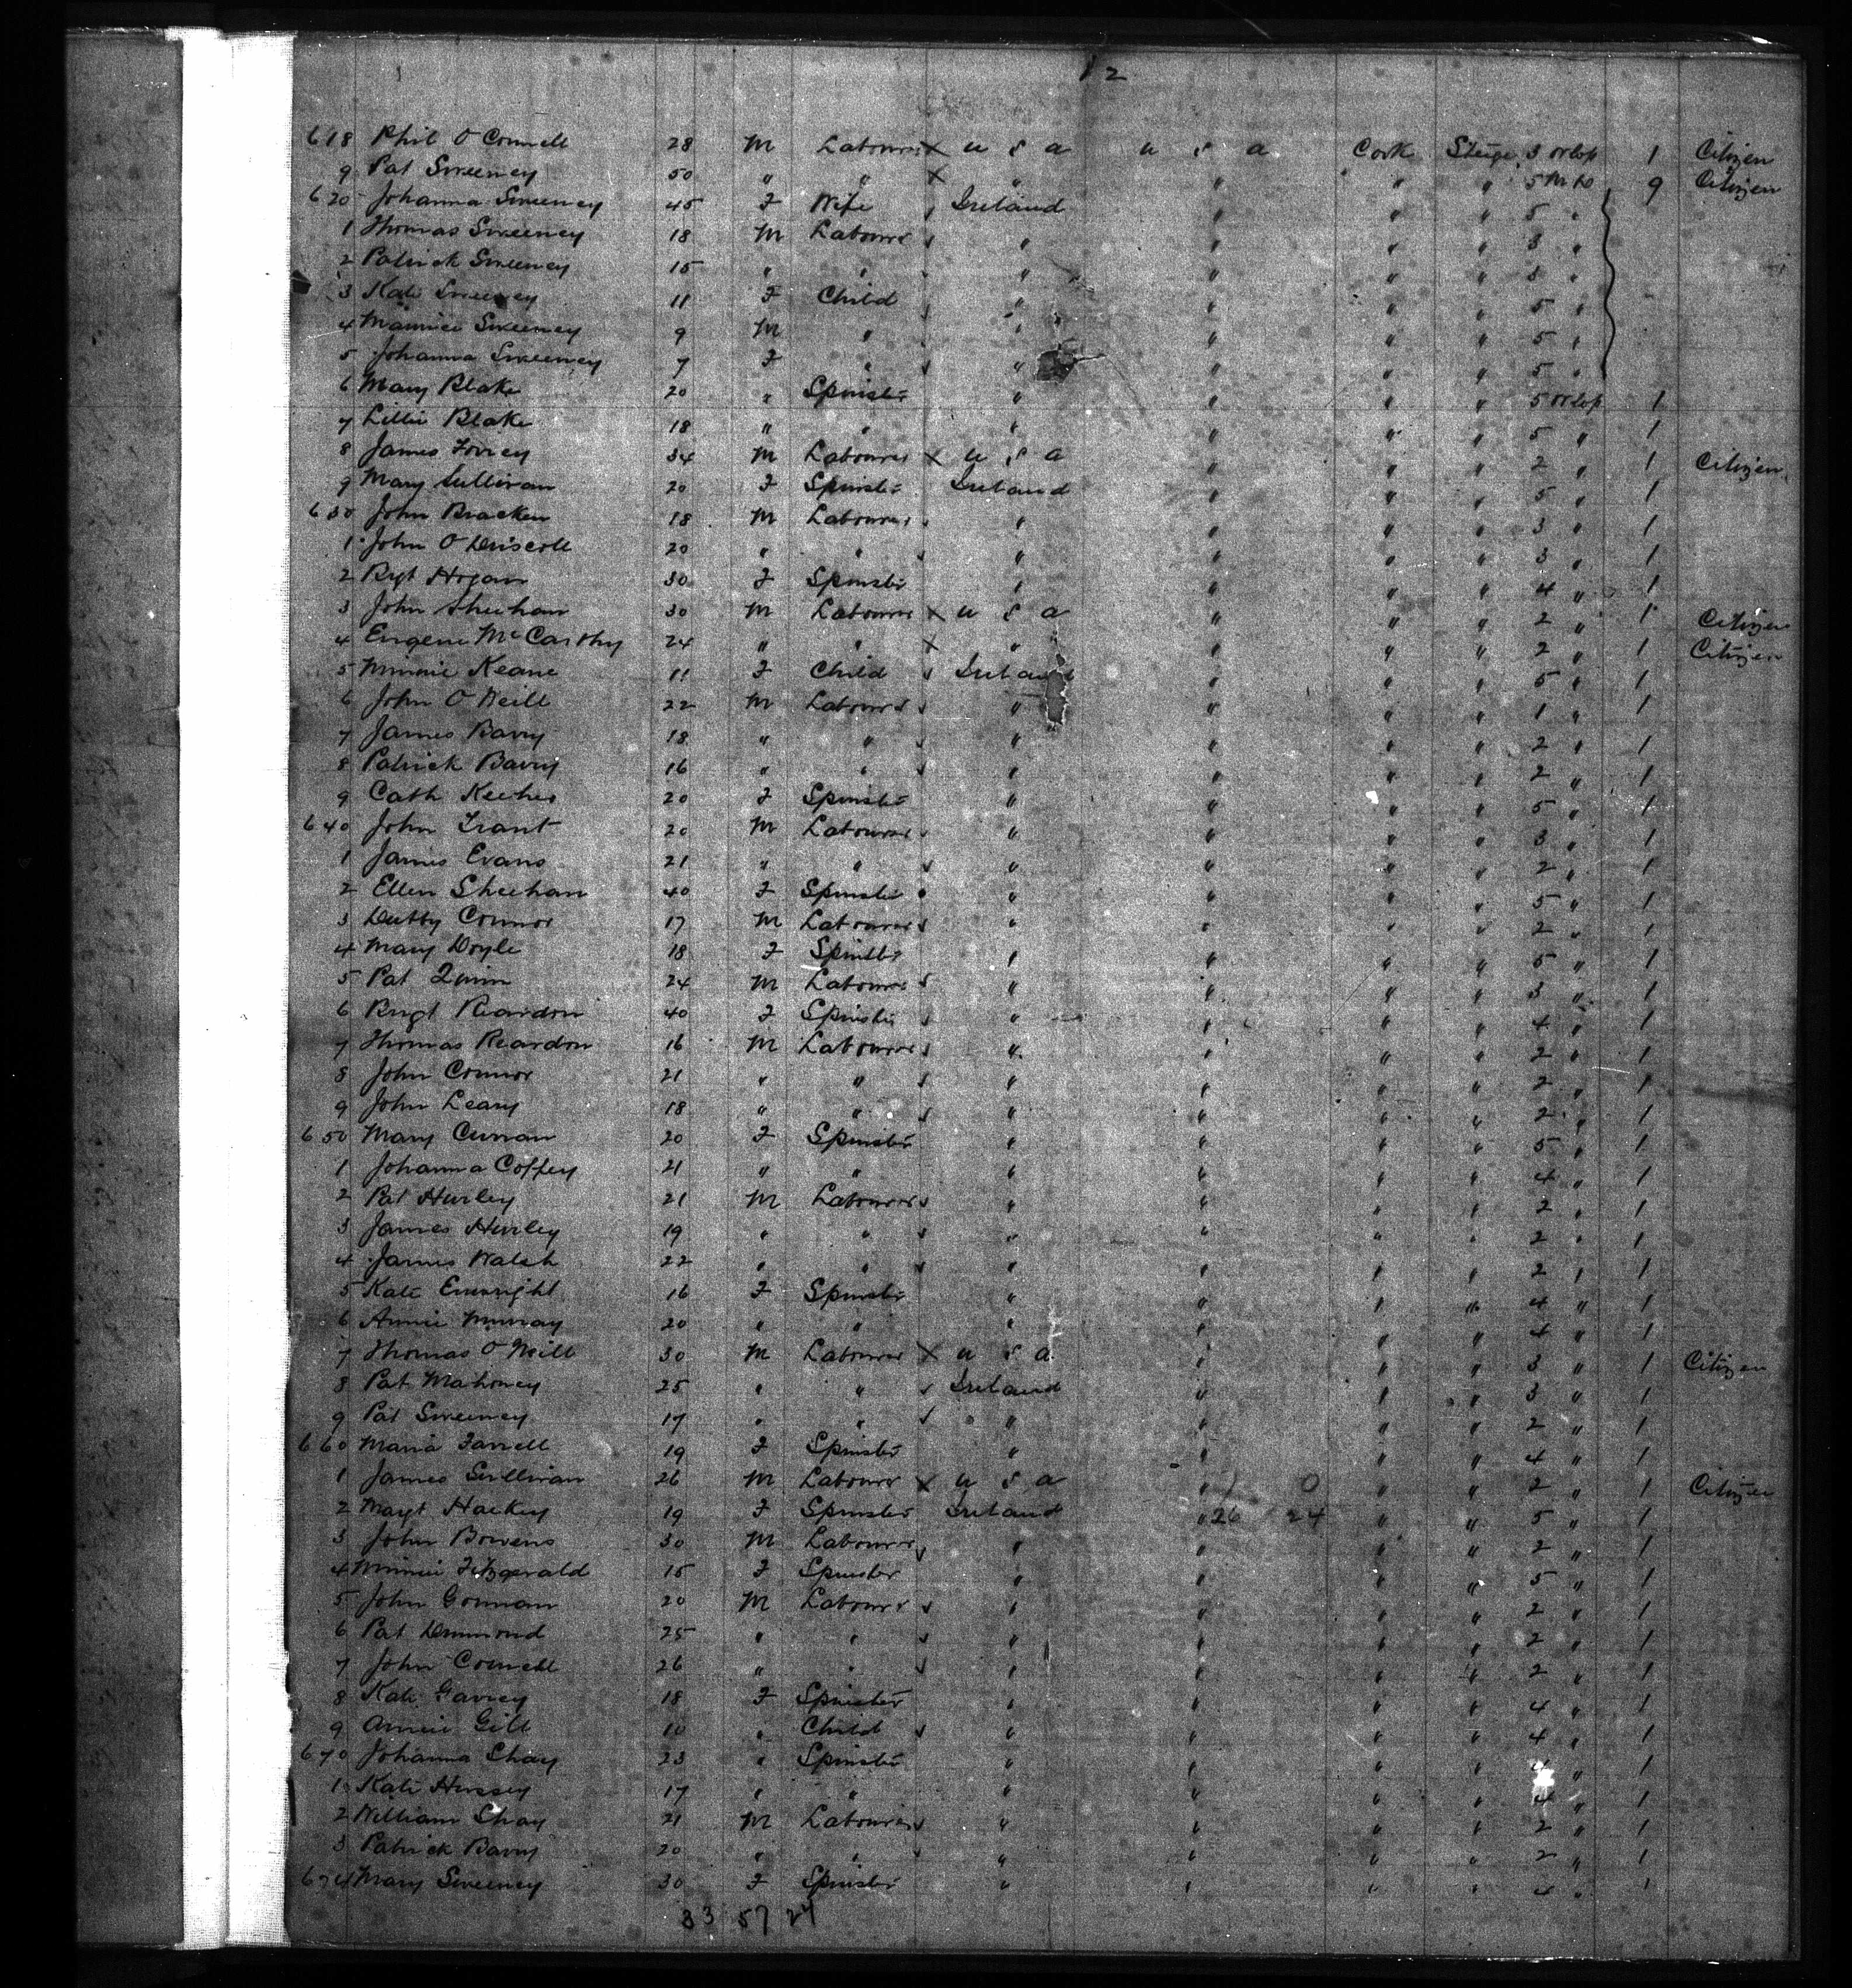 12
618 Phil O'Connell 28 M Labourer x U S A U S A Cork Steige 3 orlop 1 Citizen
9 Pat Sweeney 50 " " x " " " " 5 9 Citizen
620 Johanna Sweeney 45 F Wife Ireland " " " 5 "
1 Thomas Sweeney 18 M Labourer " " " " 3 "
2 Patrick Sweeney 15 " " " " " " 3 "
3 Kate Sweeney 11 F Child " " " " 5 "
4 Maurice Sweeney 9 M " " " " " 5 "
5 Johanna Sweeney 7 F " " " " " 5 "
6 Mary Blake 20 " Spinster " " " " 5 orlop 1
7 Lillie Blake 18 " " " " " " 5 " 1
8 James 34 M Labourer x U S A " " " 2 " 1 Citizen
9 Mary Sullivan 20 F Spinster Ireland " " " 5 " 1
630 John Bracken 18 M Labourer " " " " 3 " 1
1 John O'Driscoll 20 " " " " " " 3 " 1
2 Bgt Hogan 30 F Spinster " " " " 4 " 1
3 John Sheehan 30 M Labourer x U S A " " " 2 " 1 Citizen
4 Eugene McCarthy 24 " " x " " " " 2 " 1 Citizen
5 Minnie Keane 11 F Child Ireland " " " 5 " 1
6 John O'Neill 22 M Labourer " " " " 1 " 1
7 James Barry 18 " " " " " " 2 " 1
8 Patrick Barry 16 " " " " " " 2 " 1
9 Cath 20 F Spinster " " " " 5 " 1
640 John Trant 20 M Labourer " " " " 3 " 1
1 James Evans 21 " " " " " " 2 " 1
2 Ellen Sheehan 40 F Spinster " " " " 5 " 1
3 Connor 17 M Labourer " " " " 2 " 1
4 Mary Doyle 18 F Spinster " " " " 5 " 1
5 Pat Quinn 24 M Labourer " " " " 3 " 1
6 Brgt Reardon 40 F Spinster " " " " 4 " 1
7 Thomas Reardon 16 M Labourer " " " " 2 " 1
8 John Connor 21 " " " " " " 2 " 1
9 John Leary 18 " " " " " " 2 " 1
650 Mary Curran 20 F Spinster " " " " 5 " 1
1 Johanna Coffey 21 " " " " " " 4 " 1
2 Pat Hurley 21 M Labourer " " " " 2 " 1
3 James Hurley 19 " " " " " " 2 " 1
4 James Walsh 22 " " " " " " 2 " 1
5 Kate Enwright 16 F Spinster " " " " 4 " 1
6 Annie Murray 20 " " " " " " 4 " 1
7 Thomas O'Neill 30 M Labourer x U S A " " " 3 " 1 Citizen
8 Pat Mahoney 25 " " Ireland " " " 3 " 1
9 Pat Sweeney 17 " " " " " " 2 " 1
660 Maria Farrell 19 F Spinster " " " " 4 " 1
1 James Sullivan 26 M Labourer x U S A " " " 2 " 1 Citizen
2 Magt 19 F Spinster Ireland " 26 24 " " 5 " 1
3 John Bowens 30 M Labourer " " " " 2 " 1
4 Minnie Fitzgerald 15 F Spinster " " " " 5 " 1
5 John Gorman 20 M Labourer " " " " 2 " 1
6 Pat Drummond 25 " " " " " " 2 " 1
7 John Connell 26 " " " " " " 2 " 1
8 Kate Garvey 18 F Spinster " " " " 4 " 1
9 Annie Gill 10 " Child " " " " 4 " 1
670 Johanna Shay 23 " Spinster " " " " " 1
1 Kate Hussey 17 " " " " " " 4 " 1
2 William Shay 21 M Labourer " " " " 2 " 1
3 Patrick Barry 20 " " " " " " 2 " 1
674 Mary Sweeney 30 F Spinster " " " " 4 " 1
33 57 24